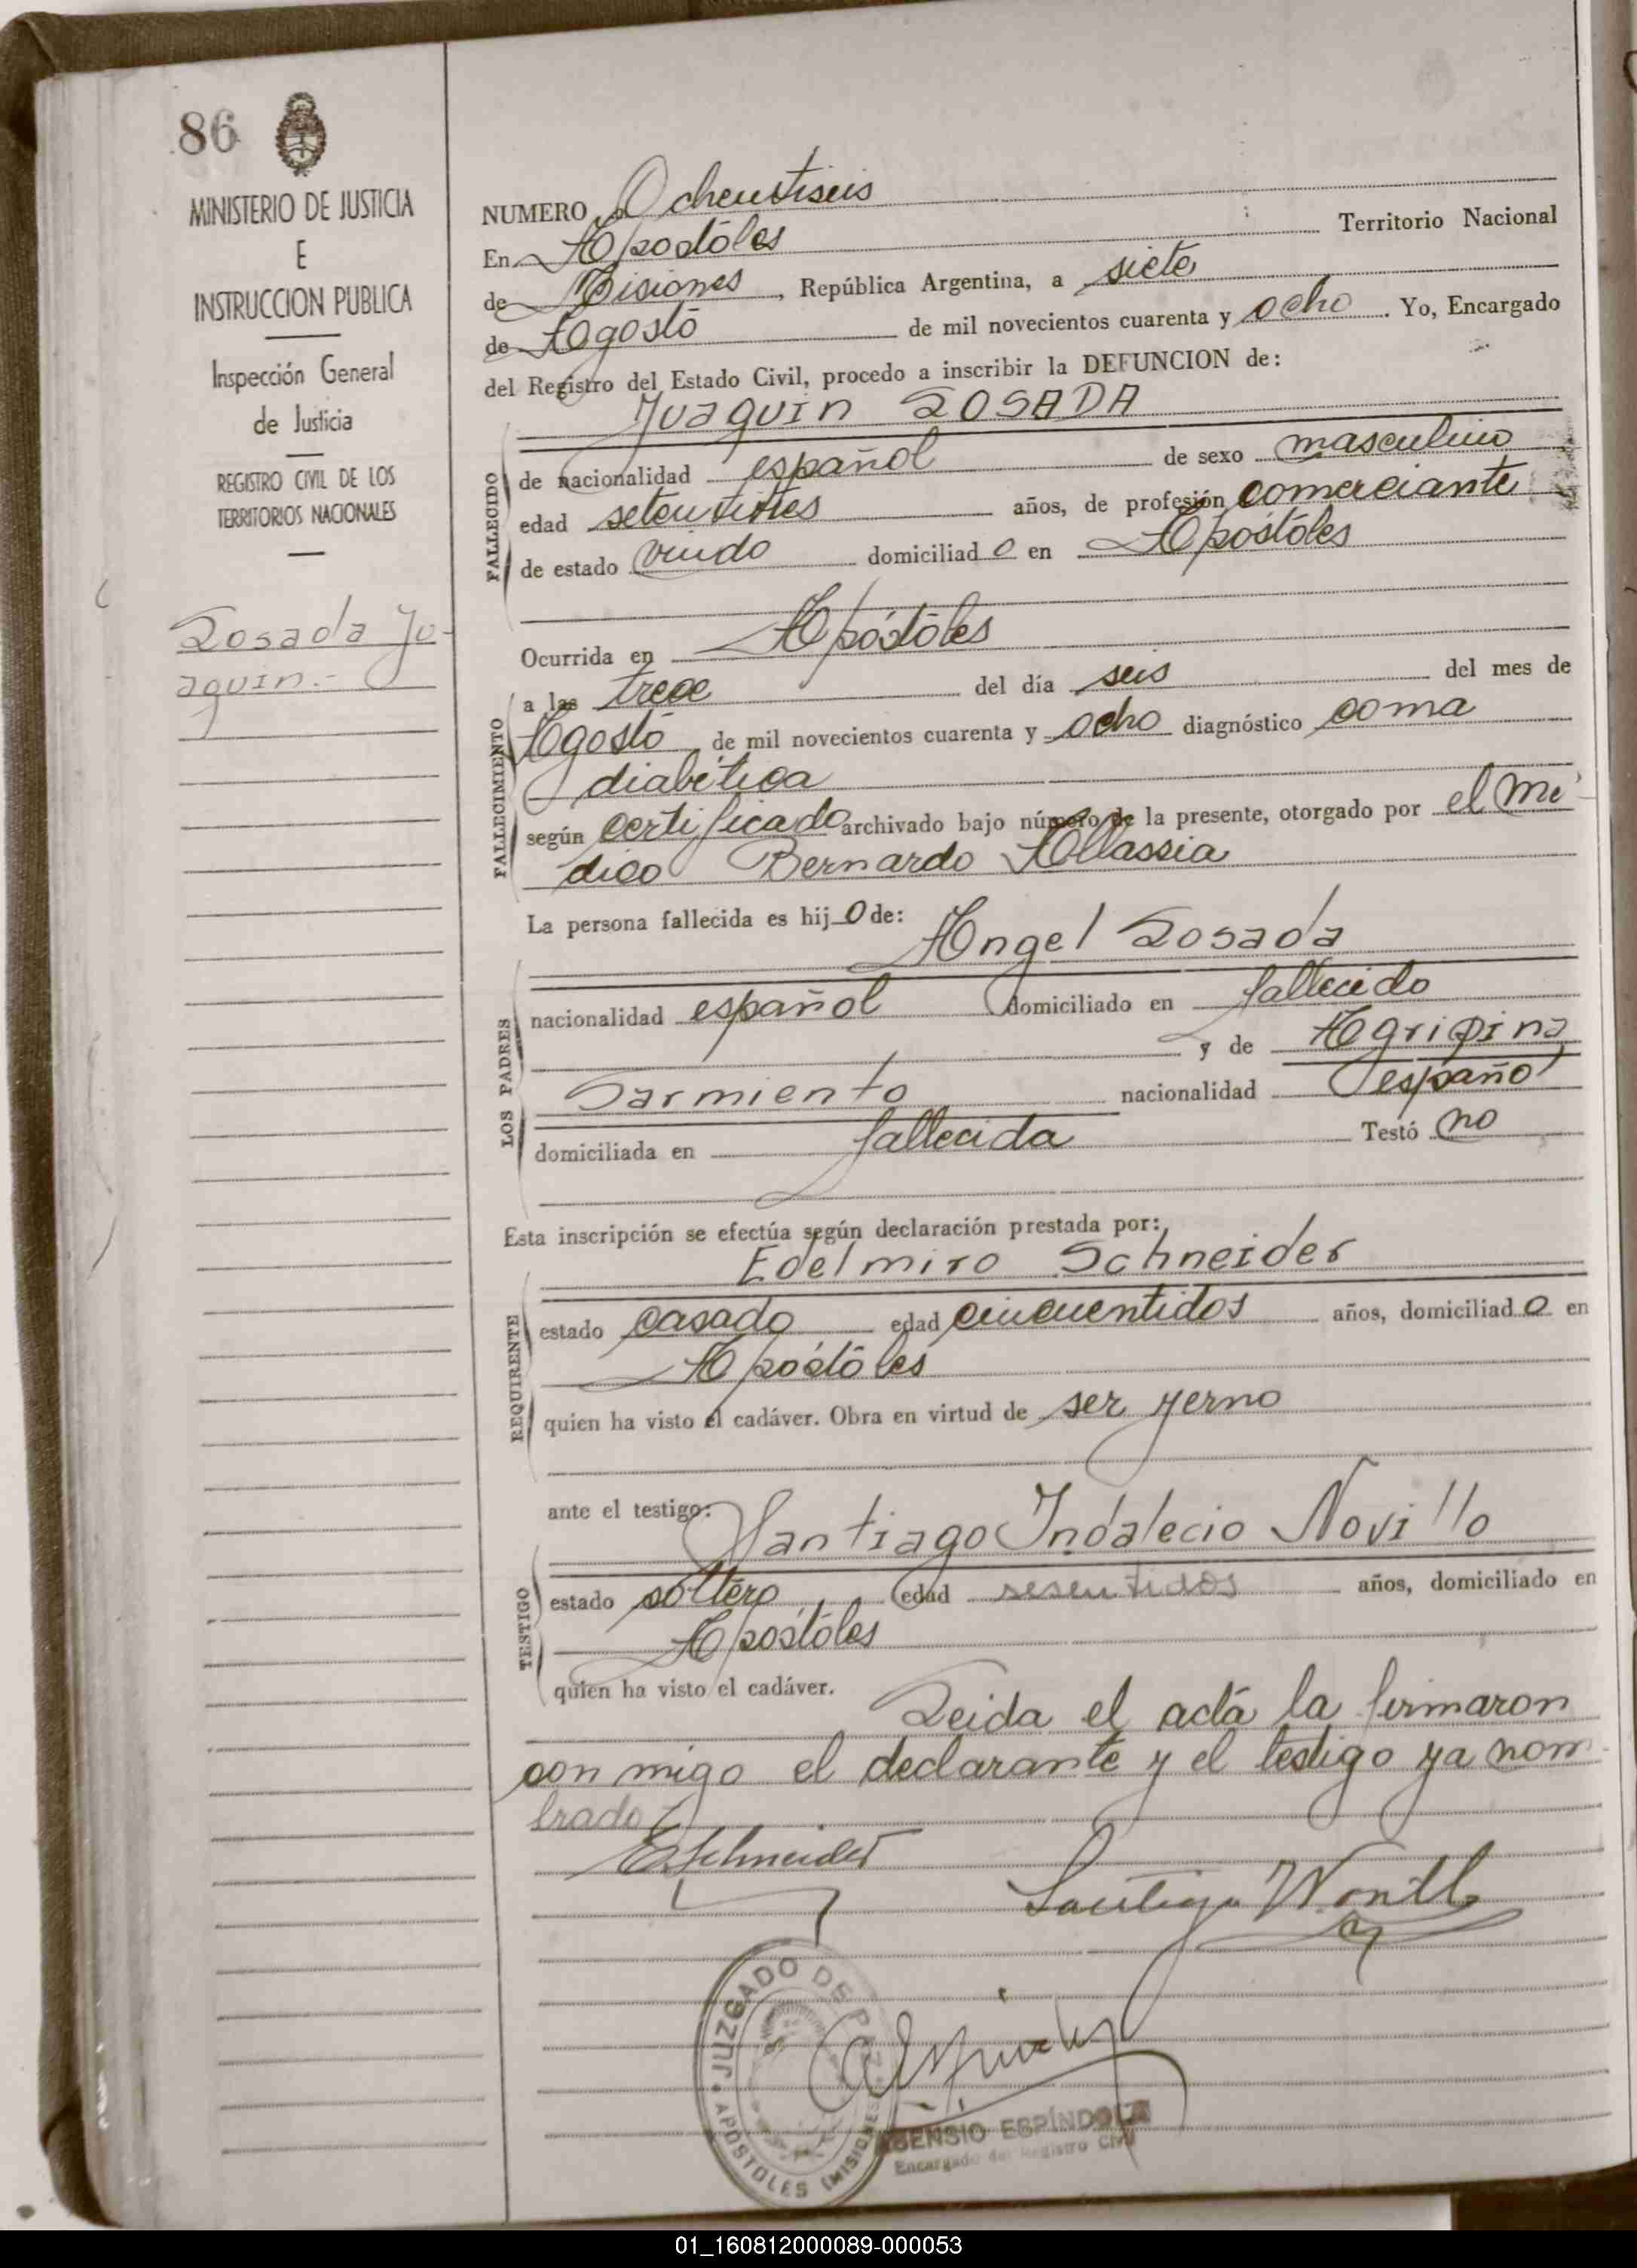 86
MINISTERIO DE JUSTICIA
E
INSTRUCCION PUBLICA
Inspección General
de Justicia
REGISTRO CIVIL DE LOS
TERRITORIOS NACIONALES
Losada Jo-
aquin.-
NUMERO Ochentiseis
En Apostóles Territorio Nacional
de Misiones, República Argentina, a siete
de Agosto de mil novecientos cuarenta y ocho. Yo, Encargado
del Registro del Estado Civil, procedo a inscribir la DEFUNCION de:
Juaquin LOSADA
FALLECIDO
de nacionalidad español de sexo masculino
edad setentitres años, de profesión comerciante
de estado viudo domiciliado en Apóstóles
Ocurrida en Apóstóles
FALLECIMIENTO
a las trece del día seis del mes de
Agosto de mil novecientos cuarenta y ocho diagnóstico coma
diabética
según certificado archivado bajo número de la presente, otorgado por el mé-
dico Bernardo Allassia
La persona fallecida es hijo de:
Angel Losada
LOS PADRES
nacionalidad español domiciliado en fallecido
y de Agripina
Sarmiento nacionalidad español
domiciliada en fallecida Testó no
Esta inscripción se efectúa según declaración prestada por:
Edelmiro Schneider
REQUIRENTE
estado casado edad cincuentidos años, domiciliado en
Apóstóles
quien ha visto el cadáver. Obra en virtud de ser yerno
ante el testigo:
Santiago Indalecio Novillo
TESTIGO
estado soltero edad sesentidos años, domiciliado en
Apóstóles
quien ha visto el cadáver.
Leida el acta la firmaron
con migo el declarante y el testigo ya nom-
brado
ESchneider
Santiago
JUZGADO DE PAZ
APOSTOLES (MISIONES)
ASENSIO ESPÍNDOLA
Encargado del Registro Civil
01_160812000089-000053